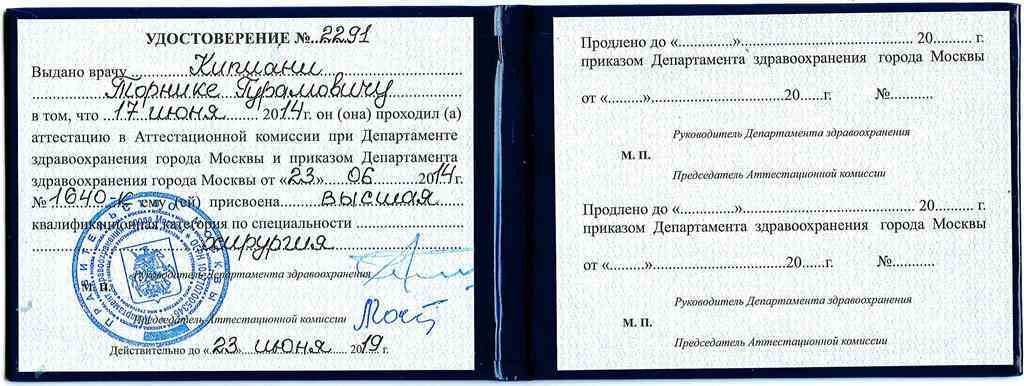 УДОСТОВЕРЕНИЕ № 2291
Выдано врачу Кипиани
Торнике Гурамовичу
в том, что 17 июня 2014 г. он (она) проходил (а)
аттестацию в Аттестационной комиссии при Департаменте
здравоохранения города Москвы и приказом Департамента
здравоохранения города Москвы от «23» 06 2014 г.
№ 1640-к ему (ей) присвоена высшая
квалификационная категория по специальности
хирургия
Руководитель Департамента здравоохранения
М. П.
Председатель Аттестационной комиссии
Действительно до «23» июня 2019 г.
Продлено до «..............» 20.......... г.
приказом Департамента здравоохранения города Москвы
от «.........» 20......г. №...........
Руководитель Департамента здравоохранения
М. П.
Председатель Аттестационной комиссии
Продлено до «..............» 20.......... г.
приказом Департамента здравоохранения города Москвы
от «.........» 20......г. №...........
Руководитель Департамента здравоохранения
М. П.
Председатель Аттестационной комиссии